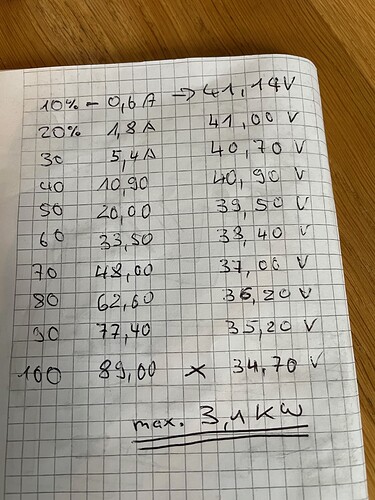 10% - 0,6 A → 41,14 V
20% 1,8 A 41,00 V
30 5,4 A 40,70 V
40 10,90 40,90 V
50 20,00 39,50 V
60 33,50 38,40 V
70 48,00 37,00 V
80 62,60 36,20 V
90 77,40 35,20 V
100 89,00 x 34,70 V
max. 3,1 KW